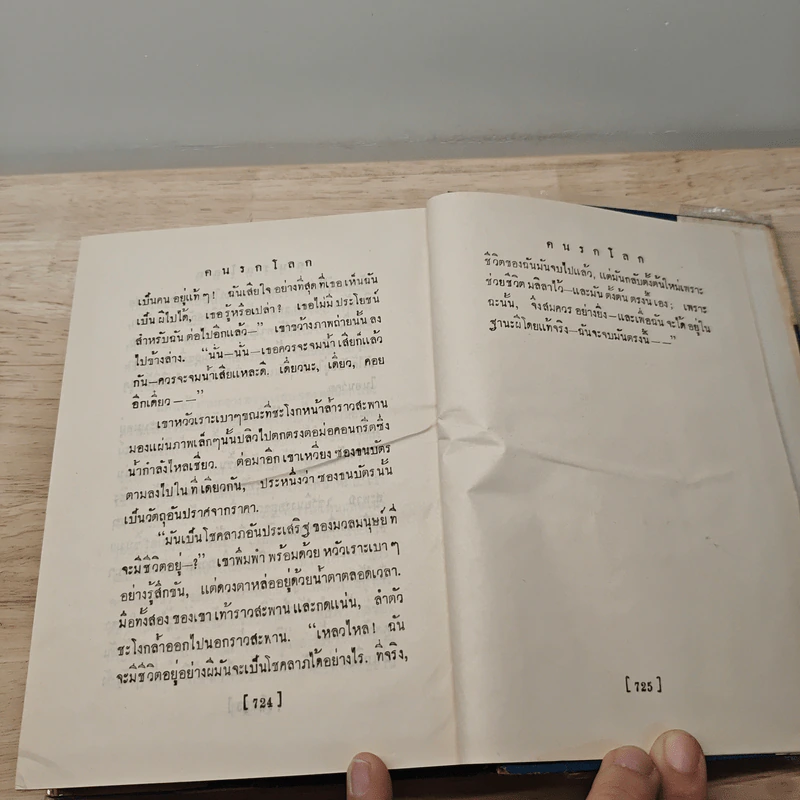 คนรกโลก
เป็นคนอยู่แท้ๆ! ฉันเสียใจอย่างที่สุดที่เธอเห็นฉัน
เป็นผีไปได้, เธอรู้หรือเปล่า? เธอไม่มีประโยชน์
สำหรับฉันต่อไปอีกแล้ว—” เขาขว้างภาพถ่ายนั้นลง
ไปข้างล่าง. “นั่น—นั่น—เธอควรจะจมน้ำเสียก็แล้ว
กัน—ควรจะจมน้ำเสียแหละดี. เดี๋ยวนะ, เดี๋ยว, คอย
อีกเดี๋ยว — —”
เขาหัวเราะเบาๆขณะที่ชะโงกหน้าล้ำราวสะพาน
มองแผ่นภาพเล็กๆนั้นปลิวไปตกตรงตอม่อคอนกรีตซึ่ง
น้ำกำลังไหลเชี่ยว. ต่อมาอีกเขาเหวี่ยงซองธนบัตร
ตามลงไปในที่เดียวกัน, ประหนึ่งว่าซองธนบัตรนั้น
เป็นวัตถุอันปราศจากราคา.
“มันเป็นโชคลาภอันประเสริฐของมวลมนุษย์ที่
จะมีชีวิตอยู่—?” เขาพึมพำพร้อมด้วยหัวเราะเบาๆ
อย่างรู้สึกขัน, แต่ดวงตาหล่ออยู่ด้วยน้ำตาตลอดเวลา.
มือทั้งสองของเขาเท้าราวสะพานและกดแน่น, ลำตัว
ชะโงกล้ำออกไปนอกราวสะพาน. “เหลวไหล! ฉัน
จะมีชีวิตอยู่อย่างผีมันจะเป็นโชคลาภได้อย่างไร. ที่จริง,
[ 724 ]
คนรกโลก
ชีวิตของฉันมันจบไปแล้ว, แต่มันกลับตั้งต้นใหม่เพราะ
ช่วยชีวิตมลิลาไว้—และมันตั้งต้นตรงนี้เอง; เพราะ
ฉะนั้น, จึงสมควรอย่างยิ่ง—และเพื่อฉันจะได้อยู่ใน
ฐานะผีโดยแท้จริง—ฉันจะจบมันตรงนี้ — —”
[ 725 ]